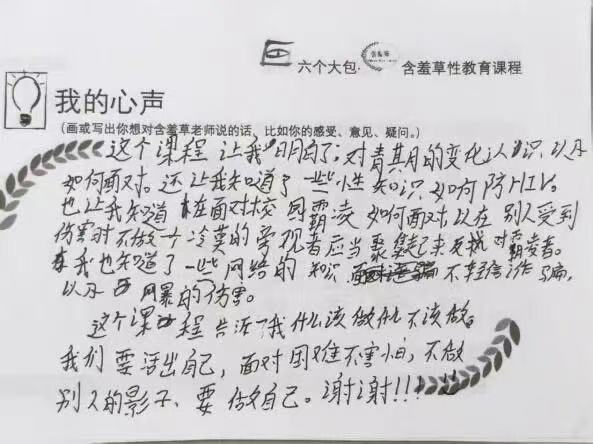 六个大包· 含羞草性教育课程
我的心声
(画或写出你想对含羞草老师说的话,比如你的感受、意见、疑问。)
这个课程 让我明白了:对青春期的变化认识 以及
如何面对。还让我知道了一些性知识 如何防HIV。
也让我知道 在面对校园霸凌 如何面对,以在 别人受到
伤害时 不做一个冷莫的旁视者应当聚集起来反抗对霸凌者。
我也知道了一些网络的知识 不轻信诈骗,
以及 网暴的伤害。
这个课程 告诉了我什么该做什么不该做。
我们 要活出自己,面对困难不害怕,不做
别人的影子、要做自己。谢谢!!!